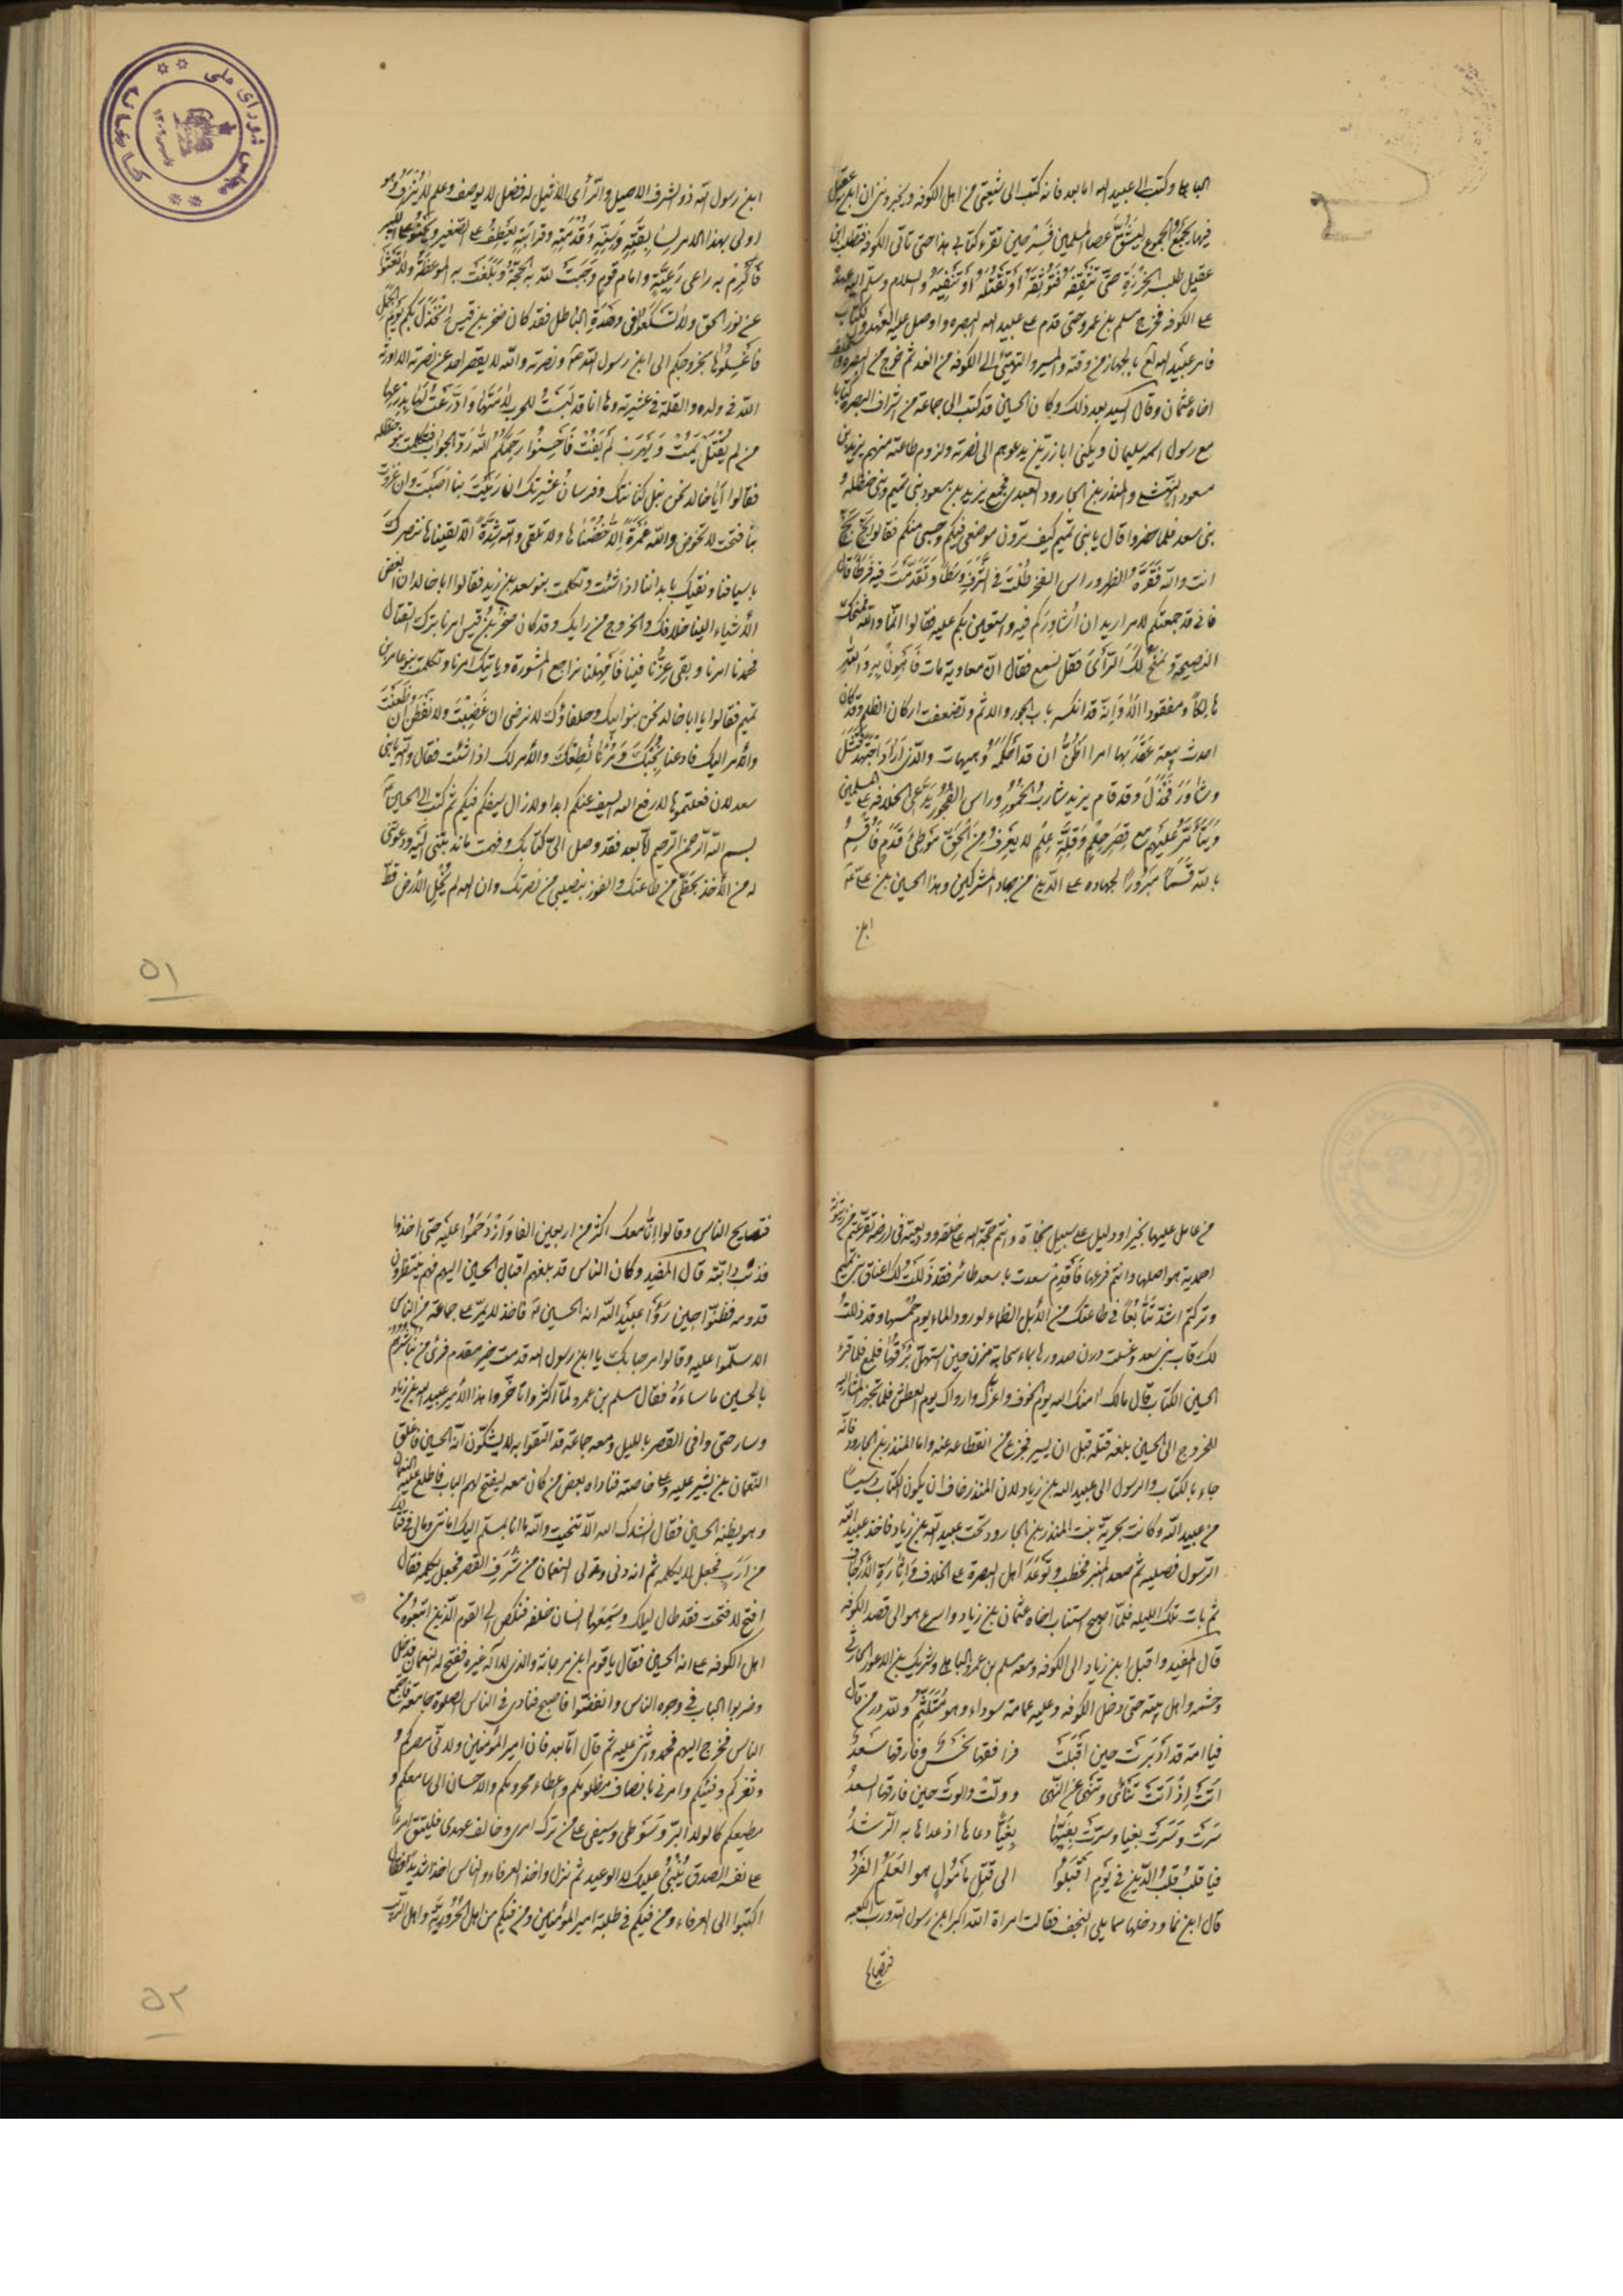 الباهلي وكتب الى عبيد الله اما بعد فانه كتب الى شيعتي من اهل الكوفه ويخبرونني ان ابن عقيل
فيها يجمع الجموع ليشق عصا المسلمين فسر حين تقرء كتابي هذا حتى تاتي الكوفه فتطلب ابن
عقيل طلب الخرزة حتى تثقفه فتوثقه او تقتله او تنفيه والسلام وسلم اليه عهده
على الكوفه فخرج مسلم بن عمرو حتى قدم على عبيد الله البصره واوصل اليه العهد والكتاب
فامر عبيد الله بالجهاز من وقته والمسير والتهيئ الى الكوفه من الغد ثم خرج من البصره واستخلف
اخاه عثمان وقال السيد بعد ذلك وكان الحسين قد كتب الى جماعة من اشراف البصره كتابا
مع رسول اسمه سليمان ويكنى ابا زرين يدعوهم الى نصرته ولزوم طاعته منهم يزيد بن
مسعود النهشلي والمنذر بن الجارود العبدي فجمع يزيد بن مسعود بني تميم وبني حنظله و
بني سعد فلما حضروا قال يا بني تميم كيف ترون موضعي فيكم وحسبي منكم فقالوا بخ بخ
انت والله فقرة الظهر وراس الفخر حللت في الشرف وسطا وتقدمت فيه فرطا قال
فاني قد جمعتكم لامر اريد ان اشاوركم فيه واستعين بكم عليه فقالوا انما والله نمنحك
النصيحة ونمنح لك الرأي فقل نسمع فقال ان معاوية مات فاهون به والله
هالكا ومفقودا الا وانه قد انكسر باب الجور والاثم وتضعضعت اركان الظلم وقد كان
احدث بيعة عقد بها امرا اظن ان قد احكمه وهيهات والذي اراد اجتهد ففشل
وشاور فخذل وقد قام يزيد شارب الخمور وراس الفجور يدعى الخلافه على المسلمين
ويتأمر عليهم مع قصر حلم وقلة علم لا يعرف من الحق موطئ قدم فاقسم
بالله قسما مبرورا لجهاده على الدين من جهاد المشركين وهذا الحسين بن علي
ابن
ابن رسول الله ذو الشرف الاصيل والرأي الاثيل له فضل لا يوصف وعلم لا ينزف وهو
اولى بهذا الامر لسابقته وسنه وقدمته وقرابته يعطف على الصغير ويحنو على الكبير
فاكرم به راعي رعية وامام قوم وجبت لله به الحجة وبلغت به الموعظة ولا تعشوا
عن نور الحق ولا تسكعوا في وهدة الباطل فقد كان صخر بن قيس انخذل بكم يوم الجمل
فاغسلوها بخروجكم الى ابن رسول الله ونصرته والله لا يقصر احد عن نصرته الا اورثه
الله في ولده والقلة في عشيرته وها انا قد لبست للحرب لامتها وادرعت لها بدرعها
من لم يقتل يمت ومن يهرب لم يفت فاحسنوا رحمكم الله رد الجواب فتكلمت بنو حنظله
فقالوا ابا خالد نحن نبل كنانتك وفرسان عشيرتك ان رميت بنا اصبت وان غزوت
بنا فتحت لا تخوض والله غمرة الا خضناها ولا تلقى والله شدة الا لقيناها ننصرك
باسيافنا ونقيك بابداننا اذا شئت وتكلمت بنو سعد بن زيد فقالوا ابا خالد ان ابغض
الاشياء الينا خلافك والخروج من رايك وقد كان صخر بن قيس امرنا بترك القتال
فحمدنا امرنا وبقي عزنا فينا فامهلنا نراجع المشورة وياتيك امرنا وتكلمت بنو عامر بن
تميم فقالوا يا ابا خالد نحن بنو ابيك وحلفاؤك لا نرضى ان غضبت ولا نقطن ان ظعنت
والامر اليك فادعنا نجبك ومرنا نطعك والامر لك اذا شئت فقال والله يا بني
سعد لان فعلتموها لا رفع الله السيف عنكم ابدا ولا زال سيفكم فيكم ثم كتب الى الحسين
بسم الله الرحمن الرحيم اما بعد فقد وصل الي كتابك وفهمت ما ندبتني اليه ودعوتني
له من الاخذ بحظي من طاعتك والفوز بنصيبي من نصرتك وان الله لم يخل الارض قط
٥١
من عامل عليها بخير او دليل على سبيل نجاة وانتم حجة الله على خلقه ووديعته في ارضه تفرعتم من زيتونة
احمدية هو اصلها وانتم فرعها فاقدم سعدت باسعد طائر فقد ذللت لك اعناق بني تميم
وتركتم اشد تتابعا في طاعتك من الابل الظماء لورود الماء يوم خمسها وقد ذللت
لك رقاب بني سعد وغسلت درن صدورها بماء سحابة مزن حين استهل برقها فلمع فلما قرء
الحسين الكتاب قال مالك امنك الله يوم الخوف واعزك وارواك يوم العطش فلما تجهز المشار اليه
للخروج الى الحسين بلغه قتله قبل ان يسير فجزع من انقطاعه عنه واما المنذر بن الجارود فانه
جاء بالكتاب والرسول الى عبيد الله بن زياد لان المنذر خاف ان يكون الكتاب دسيسا
من عبيد الله وكانت بحرية بنت المنذر بن الجارود تحت عبيد الله بن زياد فاخذ عبيد الله
الرسول فصلبه ثم صعد المنبر فخطب وتوعد اهل البصرة على الخلاف واثارة الارجاف
ثم بات تلك الليله فلما اصبح استناب اخاه عثمان بن زياد واسرع هو الى قصد الكوفه
قال المفيد واقبل ابن زياد الى الكوفه ومعه مسلم بن عمرو الباهلي وشريك بن الاعور الحارثي
وحشمه واهل بيته حتى دخل الكوفه وعليه عمامة سوداء وهو متلثم ولله در من قال
فيا امة قد ادبرت حين اقبلت فرافقها نحس وفارقها سعد
اتت اذ اتت تنأى وتنهى عن النهى وولت والوت حين فارقها السعد
سرت وسرت بغيا وسرت بغيها بغيا دعاها اذ عداها به الرشد
فيا قلب قلب الدين في يوم اقبلوا الى قتل مأمول هو العلم الفرد
قال ابن نما ودخلها مما يلي النجف فقالت امراة الله اكبر ابن رسول الله ورب الكعبه
فتصايح
فتصايح الناس وقالوا انا معك اكثر من اربعين الفا وازدحموا عليه حتى اخذوا
بذنب دابته قال المفيد وكان الناس قد بلغهم اقبال الحسين اليهم فهم ينتظرون
قدومه فظنوا حين رؤا عبيد الله انه الحسين فاخذ لا يمر على جماعة من الناس
الا سلموا عليه وقالوا مرحبا بك يا ابن رسول الله قدمت خير مقدم فرئ من تباشرهم
بالحسين ما ساءه فقال مسلم بن عمرو لما اكثروا تأخروا هذا الامير عبيد الله بن زياد
وسار حتى وافى القصر بالليل ومعه جماعة قد التفوا به لا يشكون انه الحسين فاغلق
النعمان بن بشير عليه وعلى خاصته فناداه بعض من كان معه ليفتح لهم الباب فاطلع عليه النعمان
وهو يظنه الحسين فقال انشدك الله الا تنحيت والله ما انا بمسلم اليك امانتي ومالي في قتالك
من ارب فجعل لا يكلمه ثم انه دنى وتدلى النعمان من شرف القصر فجعل يكلمه فقال
افتح لا فتحت فقد طال ليلك وسمعها انسان خلفه فنكص الى القوم الذين اتبعوه من
اهل الكوفه على انه الحسين فقال يا قوم ابن مرجانة والذي لا اله غيره ففتح له النعمان فدخل
وضربوا الباب في وجوه الناس وانفضوا فاصبح فنادى في الناس الصلوة جامعة فاجتمع
الناس فخرج اليهم فحمد واثنى عليه ثم قال اما بعد فان امير المؤمنين ولاني مصركم و
وثغركم وفيئكم وامرني بانصاف مظلومكم واعطاء محرومكم والاحسان الى سامعكم و
مطيعكم كالوالد البر وسوطي وسيفي على من ترك امري وخالف عهدي فليتق امرء
على نفسه الصدق ينبئ عليك لا الوعيد ثم نزل واخذ العرفاء والناس اخذا شديدا فقال
اكتبوا الى العرفاء ومن فيكم في طلبة امير المؤمنين ومن فيكم من اهل الحرورية واهل الريب
٥٢